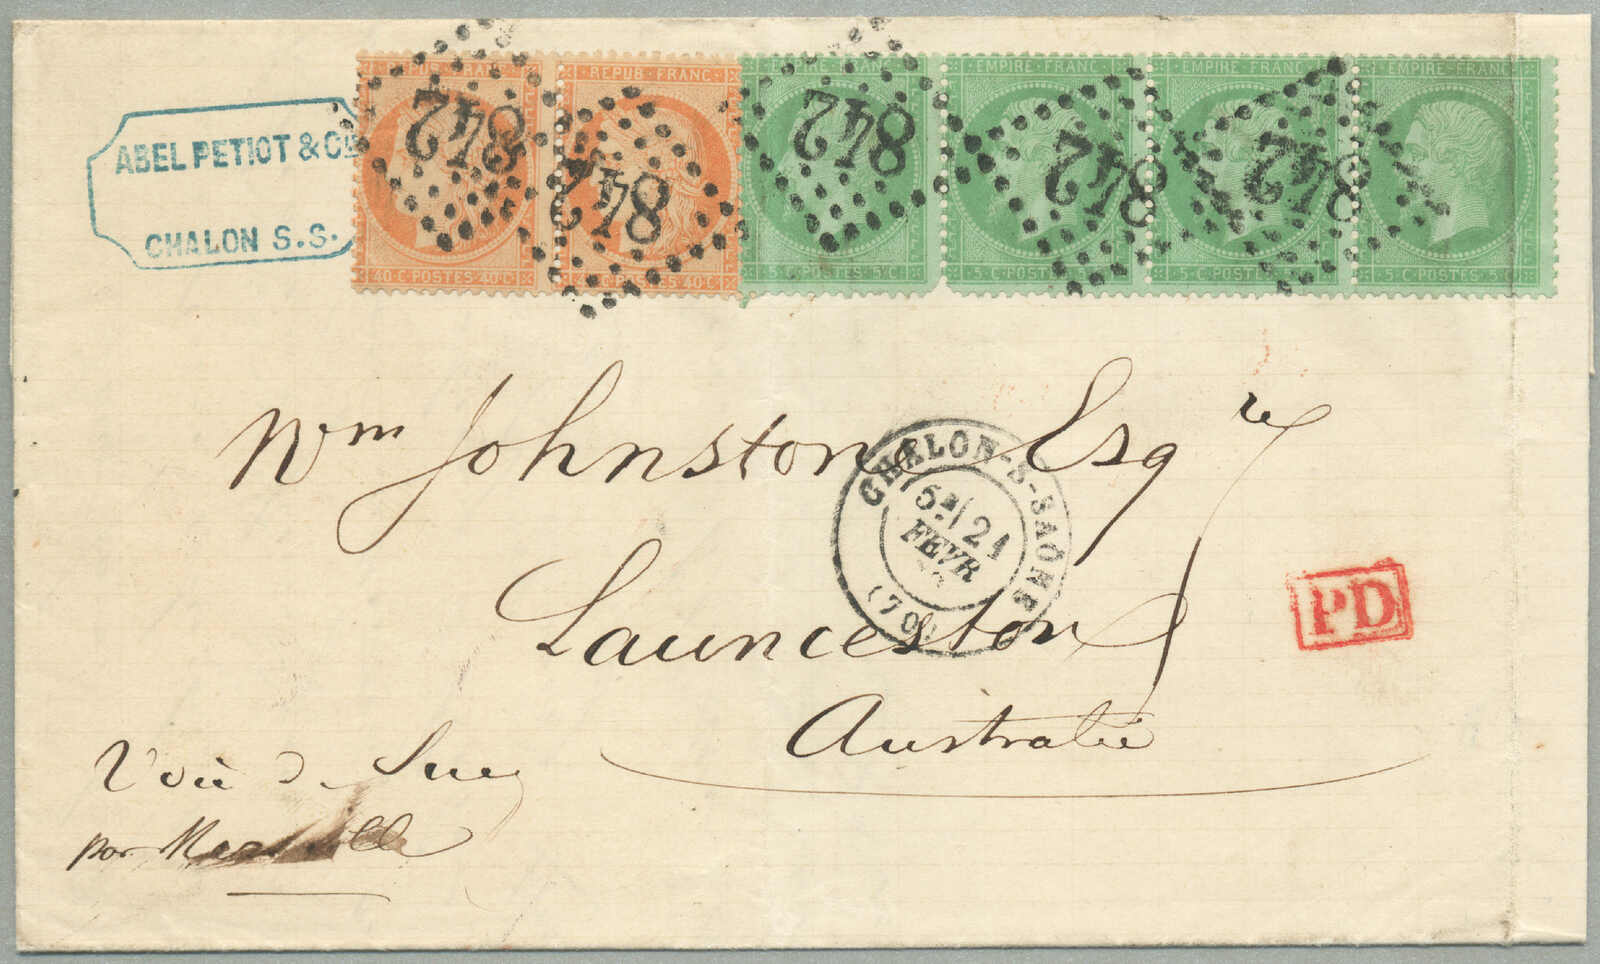 ABEL PETIOT & Cie
CHALON S.S.
REPUB·FRANC
REPUB·FRANC·
EMPIRE·FRANC
EMPIRE·FRANC
EMPIRE·FRANC
842
842
842
842
842
40·C·POSTES·40·C
POSTES·40·C
5·C·POSTES·5·C
5·C·POSTES·5·C
5·C·POSTES·5·C
5·C·POSTES·5·C
Wm Johnston Esqre
CHALON-S-SAÔNE
5E/ 21
FEVR
(70)
Launceston
PD
Australie
Voie de Suez
par Marseille